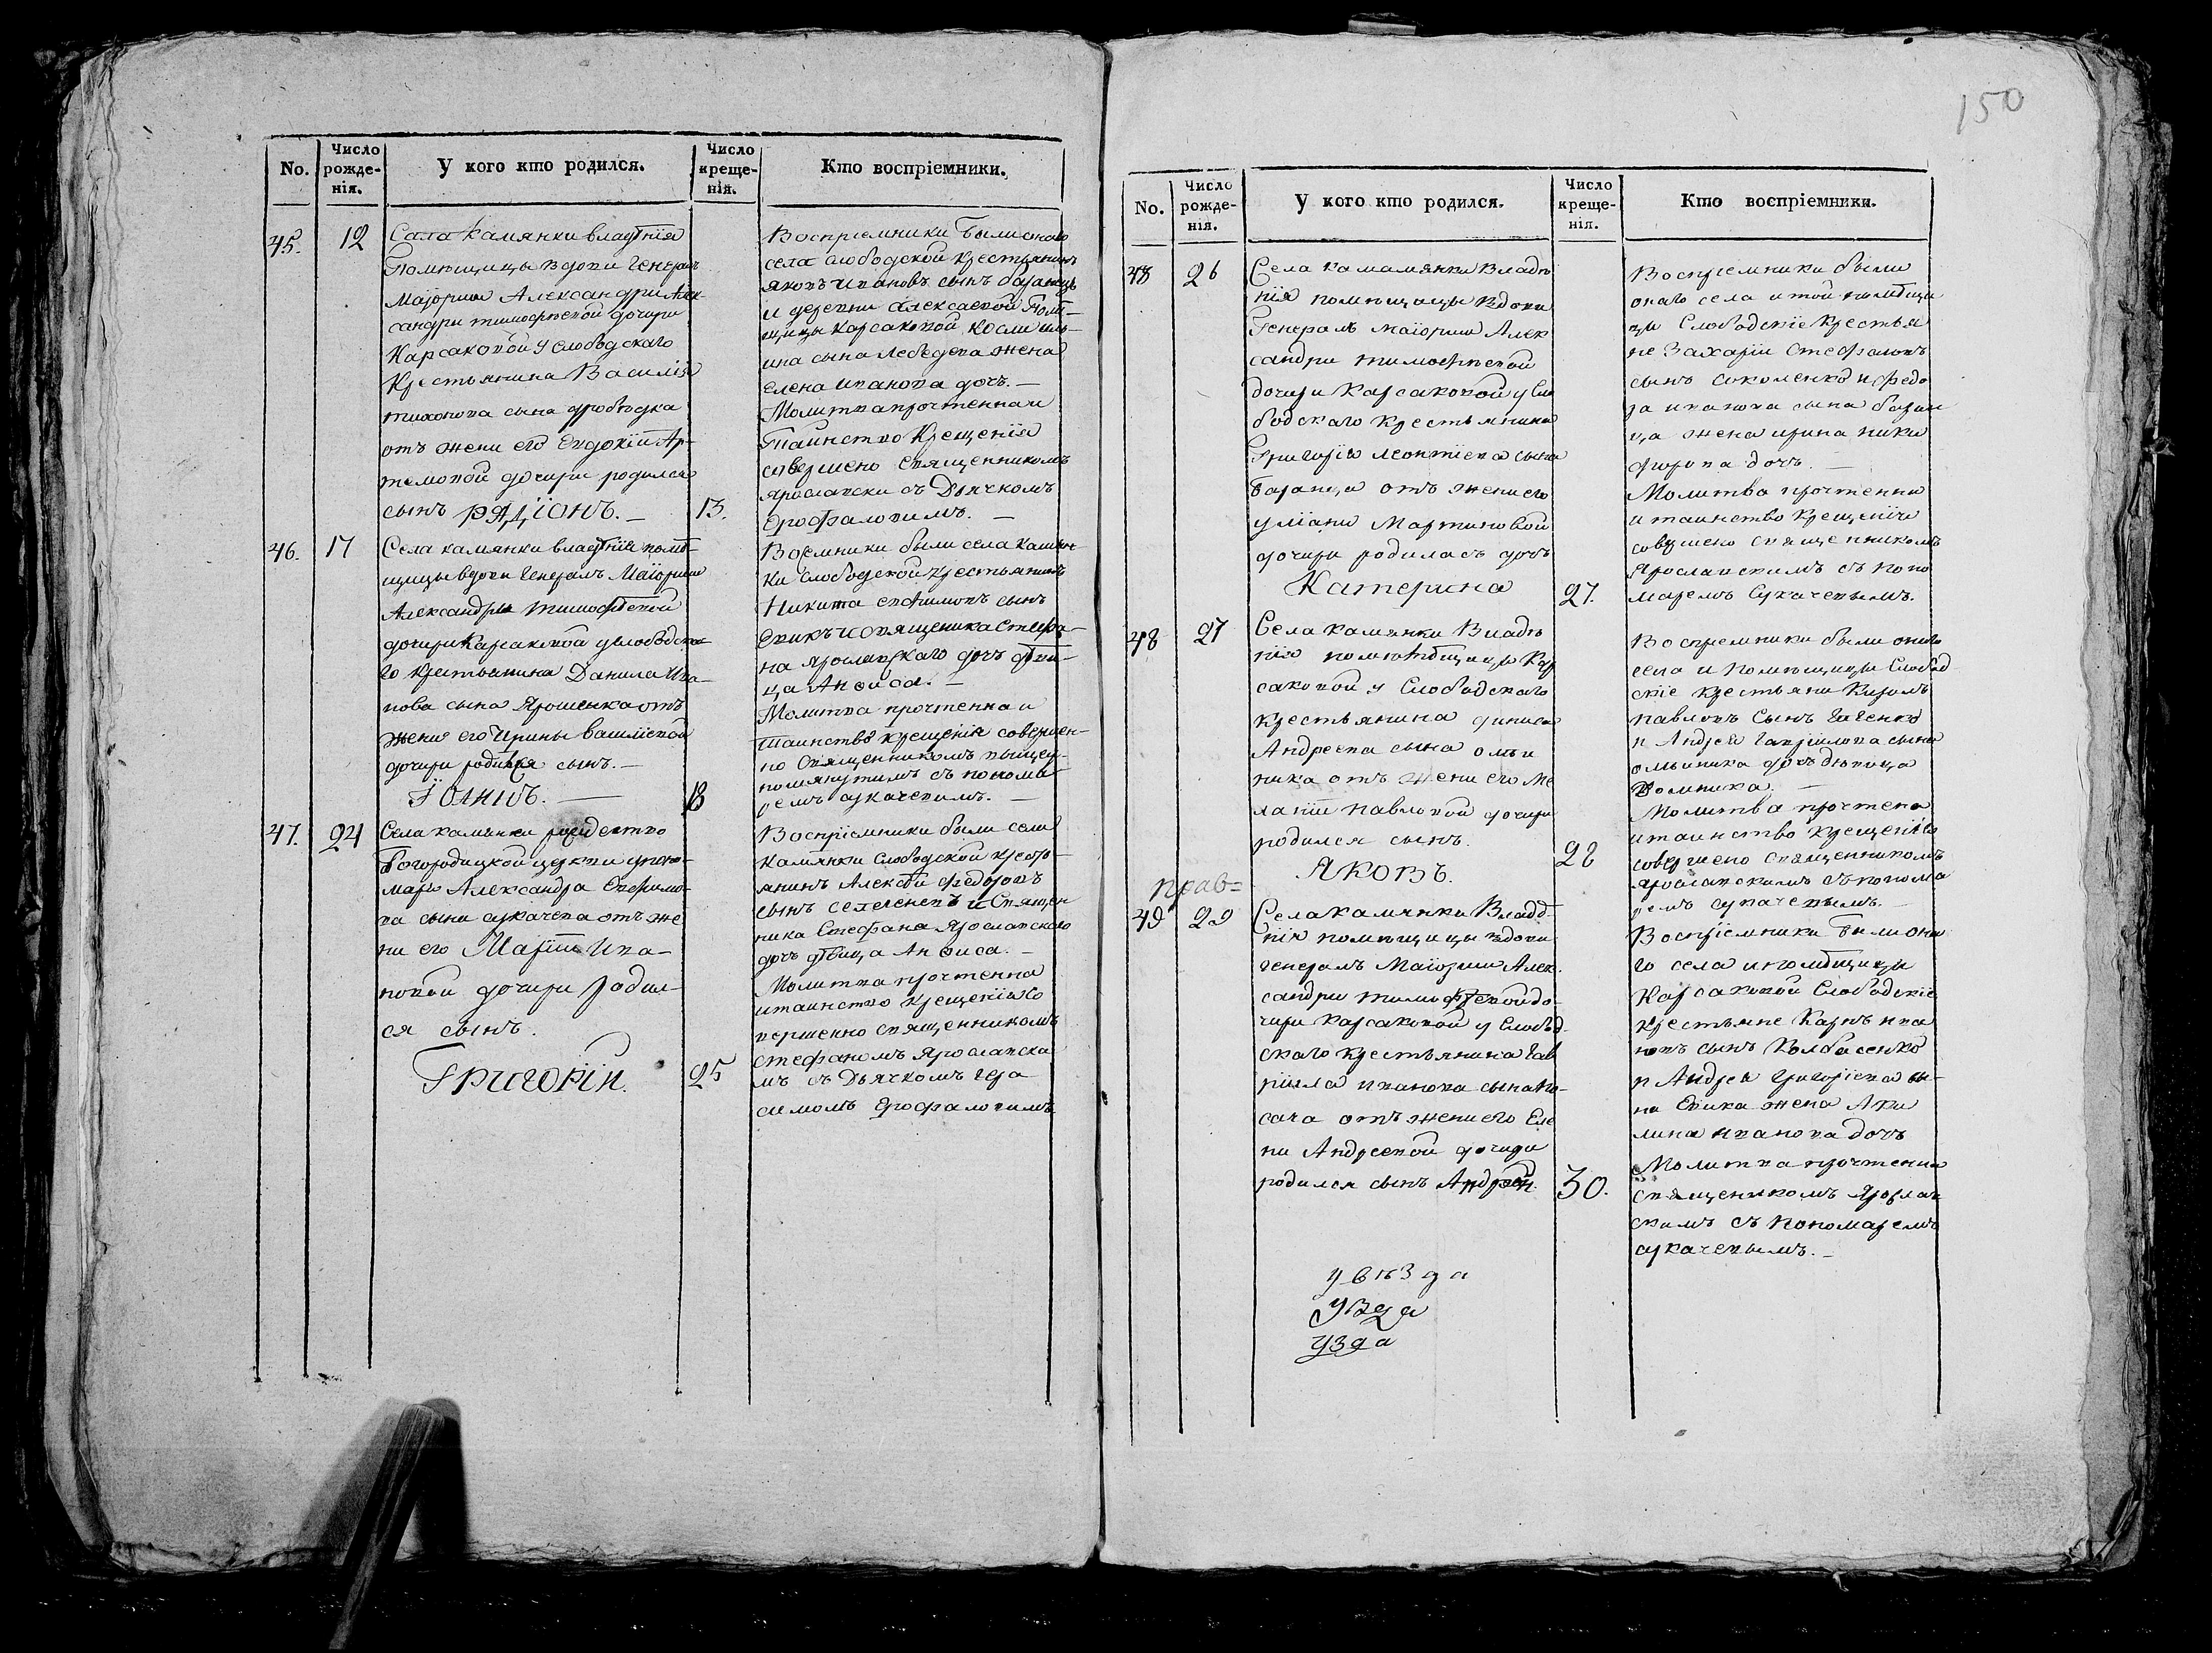 150
No.
Число рожде-нія.
У кого кто родился.
Число креще-нія.
Кто воспріемники.
45.
12
Села Камянки владѣнія
Помѣщицы вдови Генералъ
Маіорши Александри Алек-
сандри тимофѣевой дочери
Карсаковой у слободскаго
Крестьянина Василія
тихонова сына
отъ жени его Евдокіи Ар-
темовой дочери родился
сынъ РАДІОНЪ. —
13.
Воспріемники были онаго
села слободской крестьянинъ
яковъ ивановъ сынъ баранецъ
и деревни алексаевой Помѣ-
щицы Карсаковой, косми иль-
ина сына лебедева жена
елена иванова дочь. —
Молитва прочтенна и
Таинство Крещенія
совершено священникомъ
ярославски съ Дьячкомъ
Ерофаловимъ. —
46.
17
Села камянки владѣнія помѣ-
щицы вдови Генералъ Маіорши
Александры тимофѣевой
дочери Карсаковой у слободска-
го крестьянина Данила Ива-
нова сына Ярошенка отъ
жени его Ирины василіевой
дочери родился сынъ. —
ІОАННЪ. —
18
Воемники были села камян-
ки слободской крестьянинъ
Никита евфимовъ сынъ
Евикъ и священика Стефа-
на ярославскаго дочь дѣви-
ца Анфиса. —
Молитва прочтенна и
таинство крещенія совершен-
но священникомъ вышеу-
помянутимъ съ понома-
ремъ сукачевимъ. —
47.
24
Села камянки рождество
Богородицкой церкви у поно-
маря Александра Евфимо-
ва сына сукачева отъ же
ни его Маріи Ива-
новой дочери родил-
ся сынъ.
ГРИГОРІЙ.
25
Воспріемники были села
Камянки слободской кресть-
янинъ Алексѣй федоровъ
сынъ селегеневъ и священ
ника Стефана Ярославскаго
дочь дѣвица Анфиса. —
Молитва прочтенна
и таинство крещенія со
вершенно священникомъ
стефаномъ ярославски
мъ съ дьячкомъ гера
симомъ Ерофаловимъ
No.
Число рожде-нія.
У кого кто родился.
Число креще-нія.
Кто воспріемники.
48
26
Села камамянки Владѣ
нія помѣщицы вдови
Генералъ маіорши Алек
сандри тимофѣевой
дочери Карсаковой у сло
бодскаго крестьянина
Григорія леонтіева сына
Баранца отъ жени его
уліяни Мартиновой
дочери родилась дочь
Катерина
27.
Воспріемники были
онаго села и той помѣщи
цы Слободскіе крестья
не Захарій стефановъ
сынъ соколенко и федо
ра иванова сына баран
ца жена ирина ники
форова дочь. —
Молитва прочтенна
и таинство крещенія
совершено священникомъ
Ярославскимъ съ поно
маремъ Сукачевымъ.
48
27
Села камянки Владѣ
нія помѣщицы Кар
саковой у Слободскаго
крестьянина дениса
Андреева сына ольи
ника отъ жени его Ме
ланіи Павловой дочери
родился сынъ.
ЯКОВЪ.
28
Воспремники были онаго
села и помѣщицы Слобод
скіе крестьяни Кирилъ
павловъ сынъ
и Андрея гавріилова сына
ольиника дочь дѣвица
Домника. —
Молитва прочтена
и таинство крещенія
совершено священникомъ
ярославскимъ съ понома
ремъ сукачевымъ. —
прав=
49
29
Села камянки Владѣ-
нія помѣщицы вдови
генералъ Маіорши Алек-
сандри тимофѣевой до-
чери карсаковой у Слобод-
скаго крестьянина Гав
ріила иванова сына Но-
сача отъ жени его Еле
ни Андреевой дочери
родился сынъ Андрей.
30.
Воспріемники были она
го села и помѣщици
Карсаковой Слободскіе
крестьяне Карпъ ива
новъ сынъ Колбасенко
и Андрея Григоріева сы-
на Евика жена Аки
лина иванова дочь
Молитва прочтенна
священикомъ Ярослав
скимъ съ Пономаремъ
сукачевымъ. —
увѣзда
узда